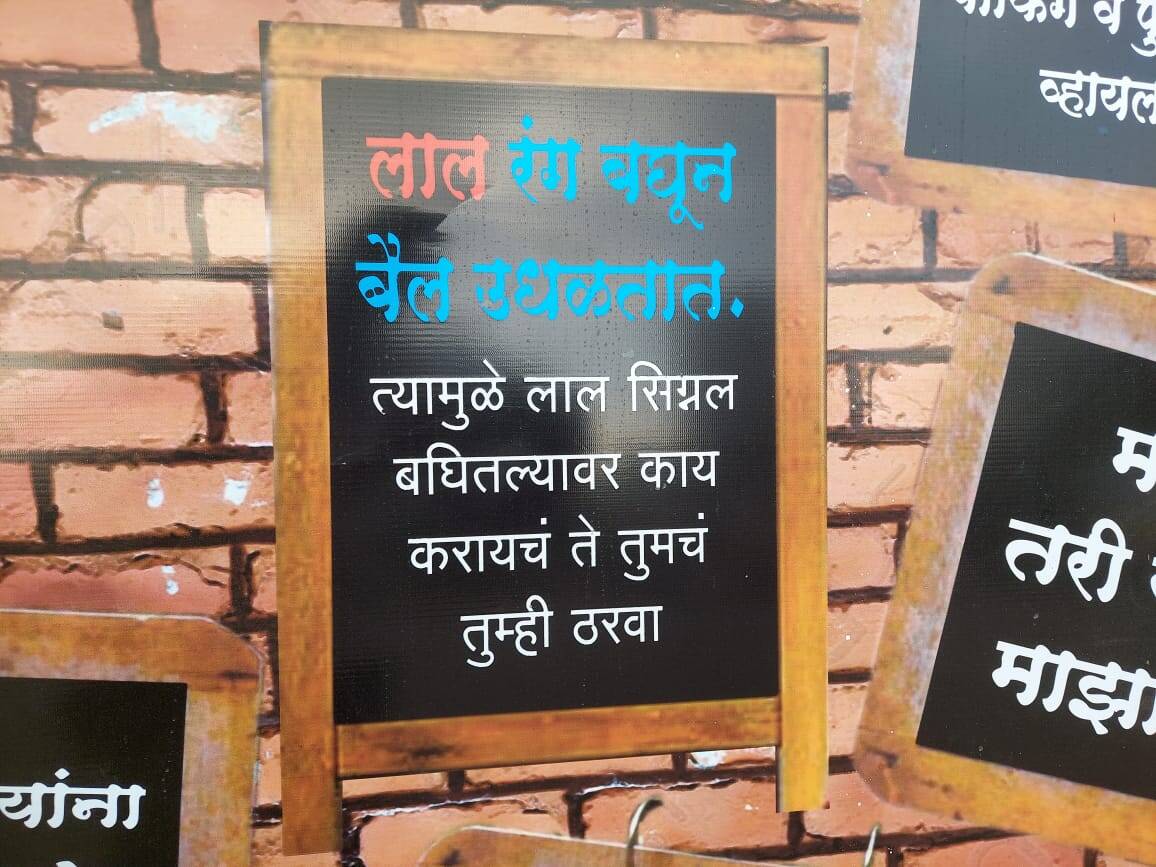 लाल रंग बघून
बैल उधळतात.
त्यामुळे लाल सिग्नल
बघितल्यावर काय
करायचं ते तुमचं
तुम्ही ठरवा
व्हायल
तरी
माझा
यांना